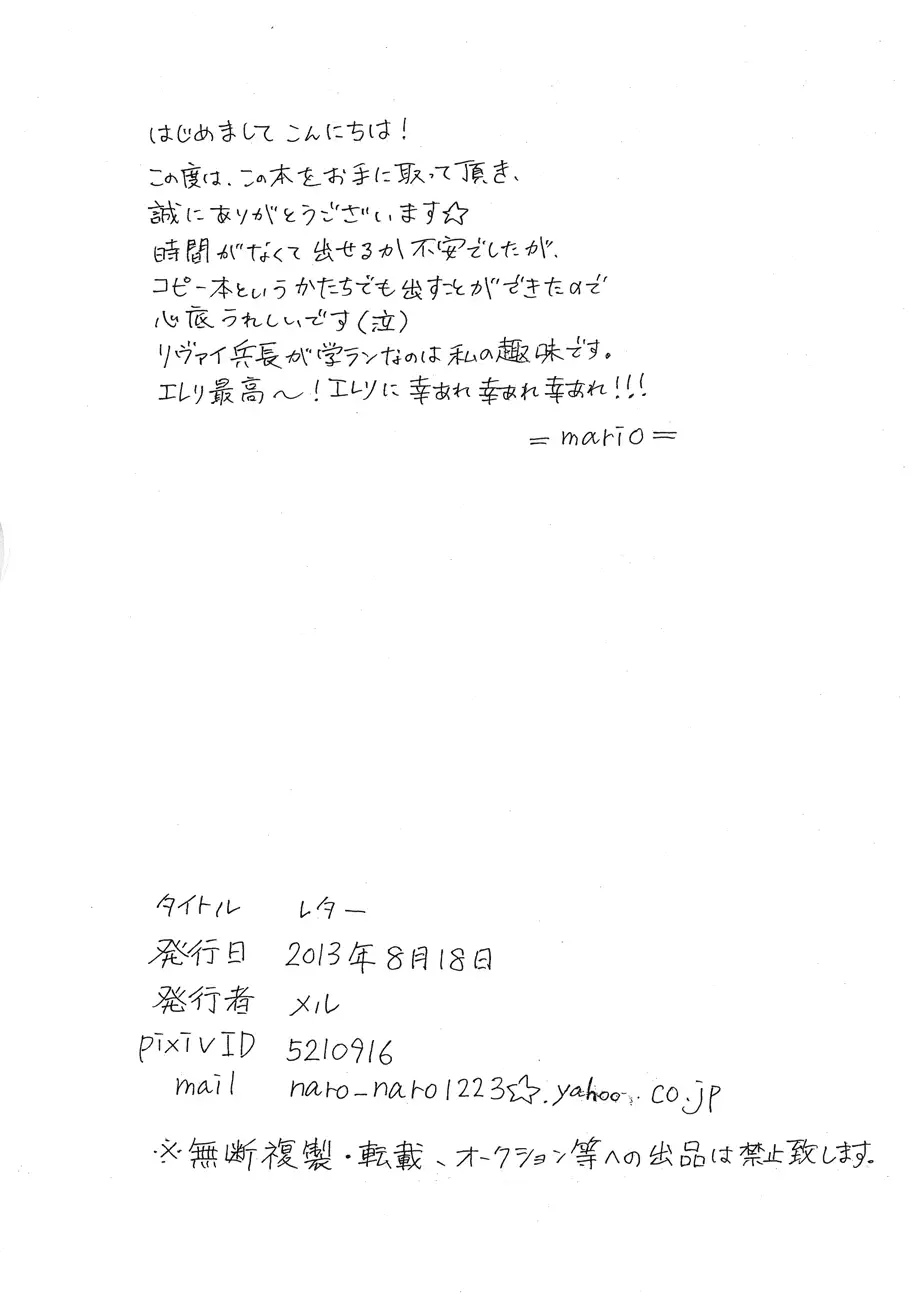 はじめまして こんにちは!
この度は、この本をお手に取って頂き、
誠にありがとうございます☆
時間がなくて出せるか不安でしたが、
コピー本というかたちでも出すことができたので
心底うれしいです(泣)
リヴァイ兵長が学ランなのは私の趣味です。
エレリ最高～!エレリに幸あれ幸あれ幸あれ!!!
=mario=
タイトル レター
発行日 2013年8月18日
発行者 メル
pixivID 5210916
mail naro_naro1223☆.yahoo.co.jp
※無断複製・転載、オークション等への出品は禁止致します。